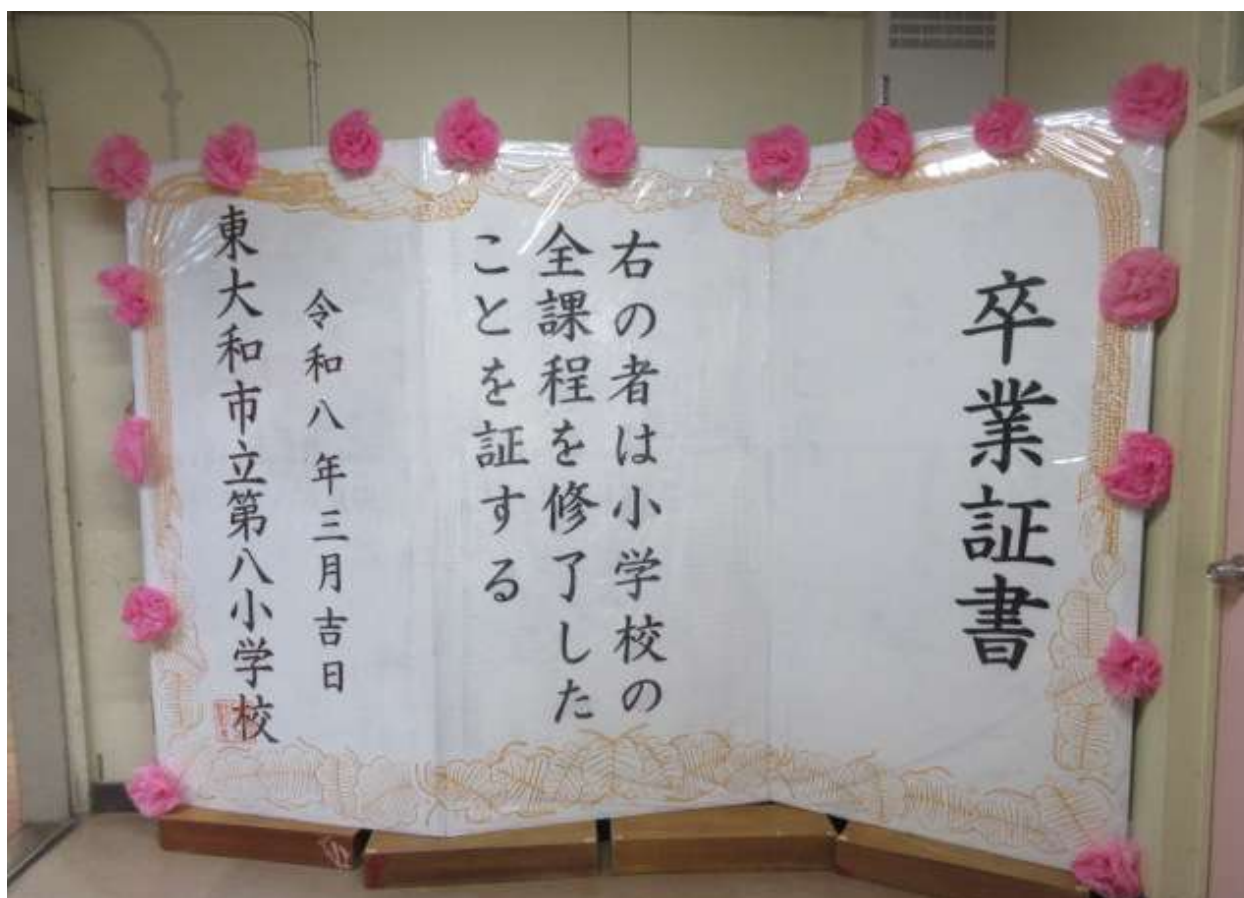 卒業証書
右の者は小学校の
全課程を修了した
ことを証する
令和八年三月吉日
東大和市立第八小学校